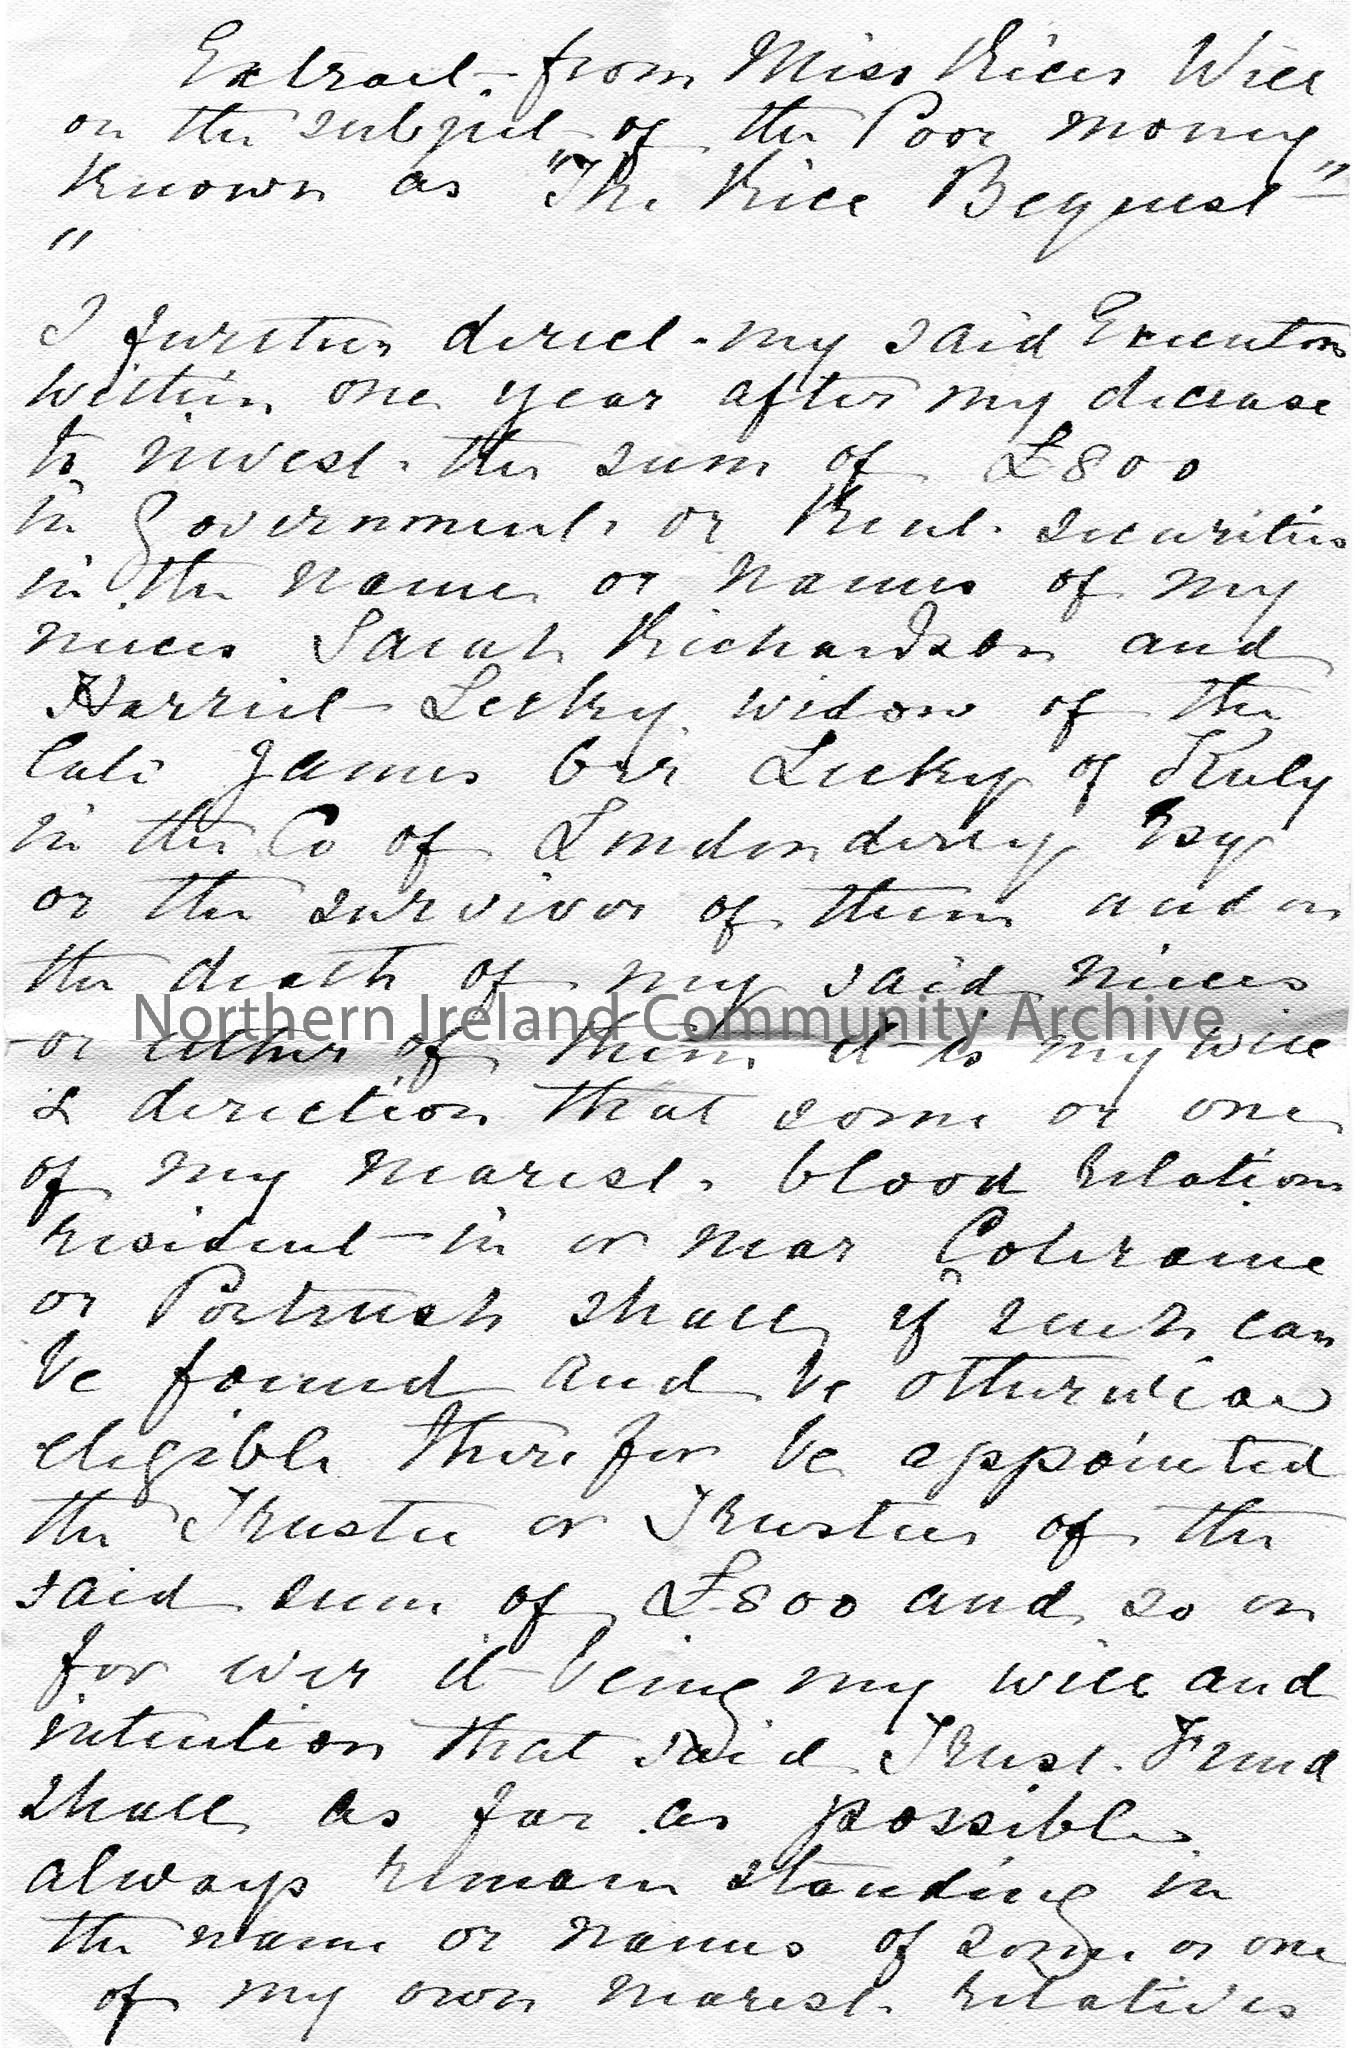 Extract from Miss Rices Will
on the subject of the Poor money
known as "The Rice Bequest"
"
I further direct my said Executors
within one year after my decease
to invest the sum of £800
in Government or Real securities
in the name or names of my
nieces Sarah Richardson and
Harriet Lecky widow of the
late James Lecky of
in the Co of Londonderry Esqr
or the survivor of them and on
the death of my said nieces
Northern Ireland Community Archive
or either of them it is my will
& direction that some or one
of my nearest blood relations
resident in or near Coleraine
or Portrush shall if such can
be found and be otherwise
eligible therefor be appointed
the Trustee or Trustees of the
said sum of £800 and so on
for ever it being my will and
intention that said Trust Fund
shall as far as possible
always remain standing in
the name or names of some or one
of my own nearest relatives